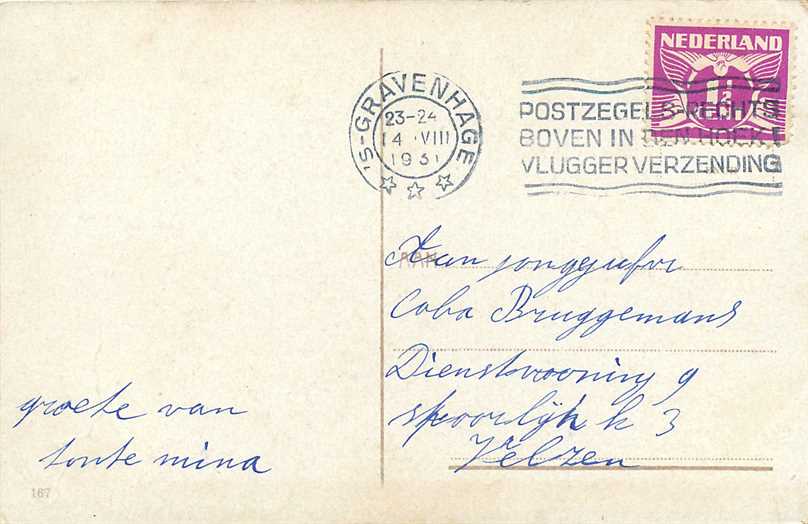 NEDERLAND
1½
CENT
'S-GRAVENHAGE
23-24
14 VIII
1931
POSTZEGELS RECHTS
BOVEN IN DEN HOEK !
VLUGGER VERZENDING
AAN
Aan jongejufvr
Coba Bruggemans
Dienstwooning 9
spoorlijn k 3
Velzen
groete van
tante mina
167